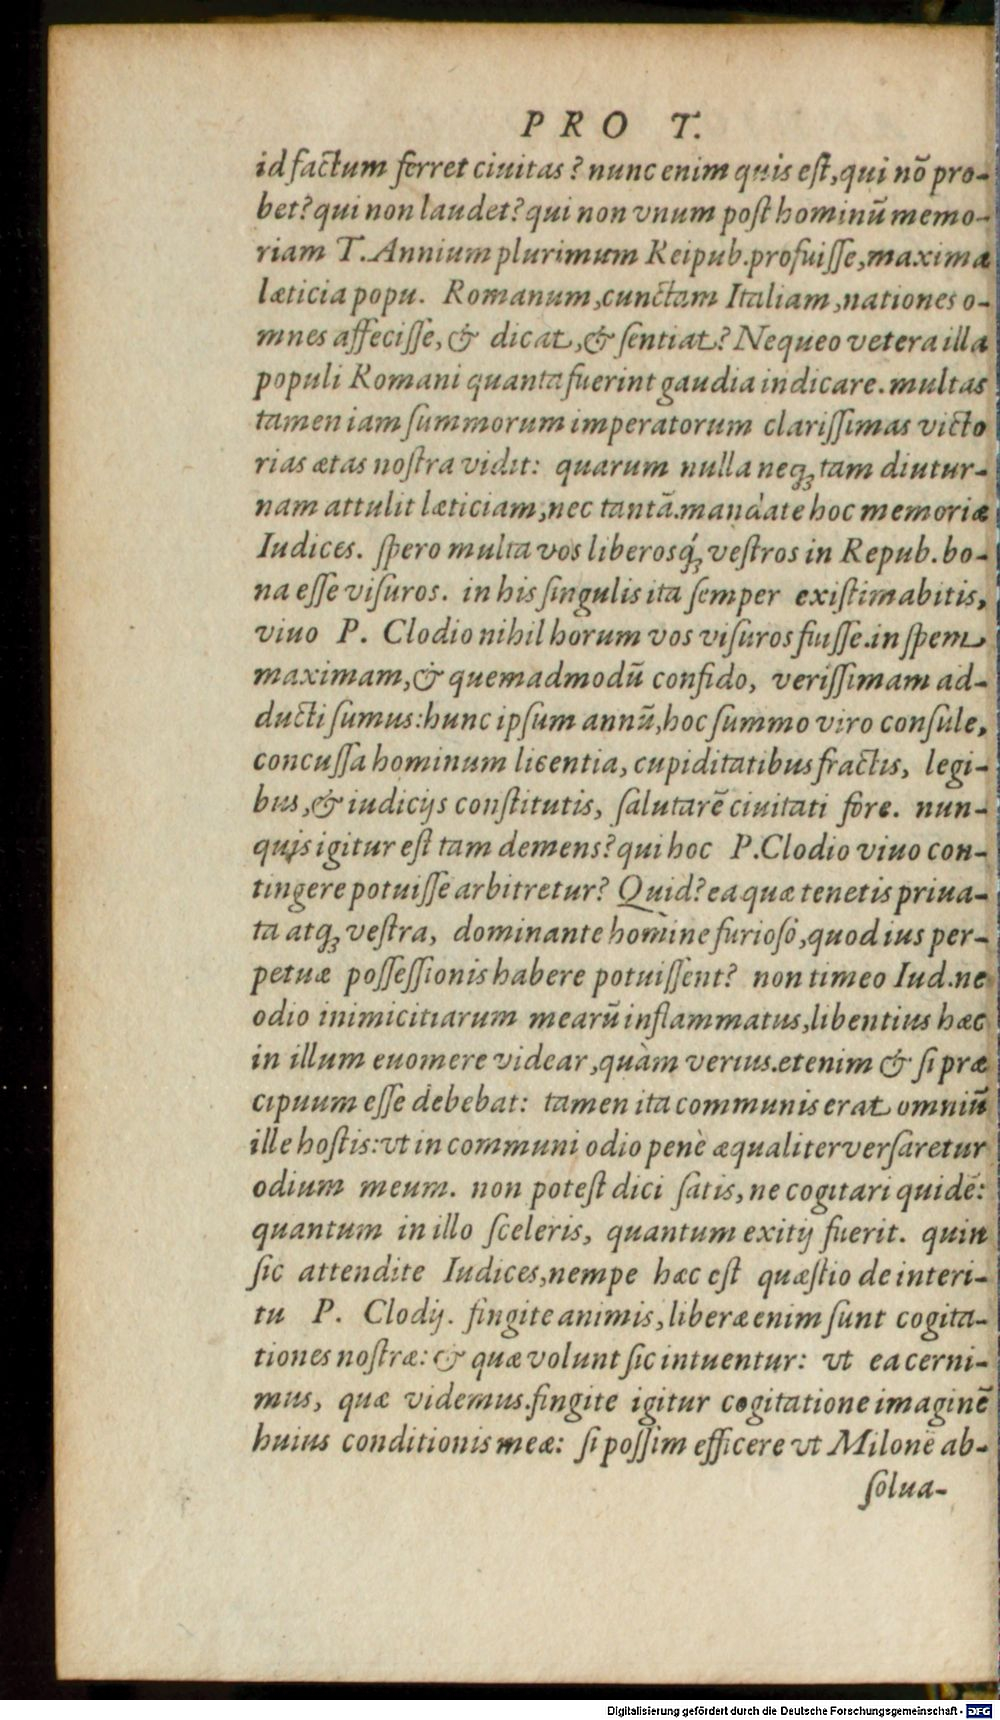 PRO T.
id factum ferret ciuitas? nunc enim quis est, qui nõ pro-
bet? qui non laudet? qui non vnum post hominũ memo-
riam T. Annium plurimum Reipub. profuisse, maxima
læticia popu. Romanum, cunctam Italiam, nationes o-
mnes affecisse, & dicat, & sentiat? Nequeo vetera illa
populi Romani quanta fuerint gaudia indicare. multas
tamen iam summorum imperatorum clarissimas victo
rias ætas nostra vidit: quarum nulla neqꝫ tam diutur-
nam attulit læticiam, nec tantã. mandate hoc memoriæ
Iudices. spero multa vos liberosq́ꝫ vestros in Repub. bo-
na esse visuros. in his singulis ita semper existimabitis,
viuo P. Clodio nihil horum vos visuros fuisse. in spem
maximam, & quemadmodũ confido, verissimam ad-
ducti sumus: hunc ipsum annũ, hoc summo viro consule,
concussa hominum licentia, cupiditatibus fractis, legi-
bus, & iudicijs constitutis, salutarẽ ciuitati fore. nun-
quis igitur est tam demens? qui hoc P. Clodio viuo con-
tingere potuisse arbitretur? Quid? ea quæ tenetis priua-
ta atqꝫ vestra, dominante homine furioso, quod ius per-
petuæ possessionis habere potuissent? non timeo Iud. ne
odio inimicitiarum mearũ inflammatus, libentius hæc
in illum euomere videar, quàm verius. etenim & si præ
cipuum esse debebat: tamen ita communis erat omniũ
ille hostis: vt in communi odio penè æqualiter versaretur
odium meum. non potest dici satis, ne cogitari quidẽ:
quantum in illo sceleris, quantum exitij fuerit. quin
sic attendite Iudices, nempe hæc est quæstio de interi-
tu P. Clodij. fingite animis, liberæ enim sunt cogita-
tiones nostræ: & quæ volunt sic intuentur: vt ea cerni-
mus, quæ videmus. fingite igitur cogitatione imaginẽ
huius conditionis meæ: si possim efficere vt Milonẽ ab-
solua-
Digitalisierung gefördert durch die Deutsche Forschungsgemeinschaft - DFG